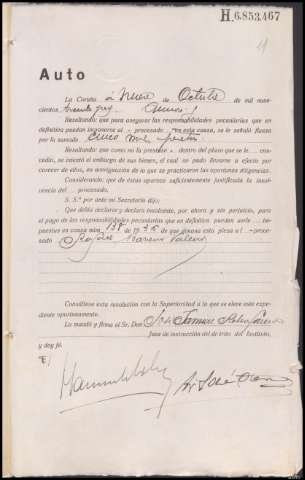 H.6.853.467
Auto
La Coruña a nueve de Octubre de mil nove-
cientos treinta y
Resultando: que para asegurar las responsabilidades pecuniarias que en
definitiva puedan imponerse al procesado en esta causa, se le señaló fianza
por la suma de cinco mil pesetas
Resultando: que como no la prestase dentro del plazo que se le con-
cedió, se intentó el embargo de sus bienes, el cual no pudo llevarse a efecto por
carecer de ellos, en averiguación de lo que se practicaron las oportunas diligencias.
Considerando, que de éstas aparece suficientemente justificada la insol-
vencia del procesado.
S. S.ª por ante mí Secretario dijo:
Que debía declarar y declara insolvente, por ahora y sin perjuicio, para
el pago de las responsabilidades pecuniarias que en definitiva puedan serle im-
puestas en causa núm. 138 de 1936 de que dimana esta pieza al pro-
cesado
Consúltese esta resolución con la Superioridad a la que se eleve este expe-
diente oportunamente.
Lo mandó y firma el Sr. Don José
Juez de instrucción del de esta del Instituto,
y doy fé.